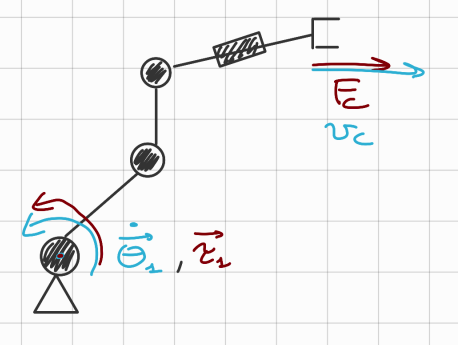 F_c
v_c
θ̇⃗₁ , τ⃗₁